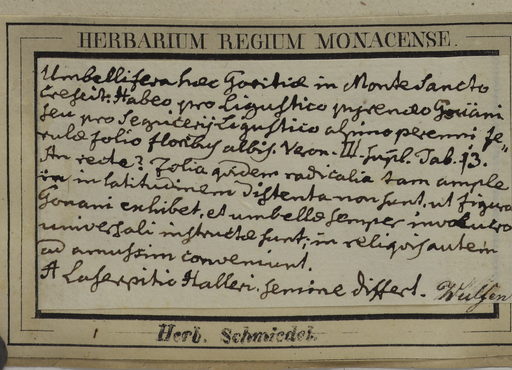 HERBARIUM REGIUM MONACENSE.
Umbellifera haec Goritiae in Monte Sancto
Crescit. Habeo pro Ligustico pyrenaeo Goüani
seu pro Seguierij Ligustico alpino perenni fe„
rulae folio floribus albis. Veron. III. Supl. Tab. 13.
An recte? folia quidem radicalia tam ample
in latitudinem distenta non sunt, ut figura
Gouani exhibet, et umbellae semper involucro
universali instructae sunt; in reliquis autem
ad amussim conveniunt.
A Laserpitio Halleri. semine differt. Wulfen
1 Herb. Schmiedel.